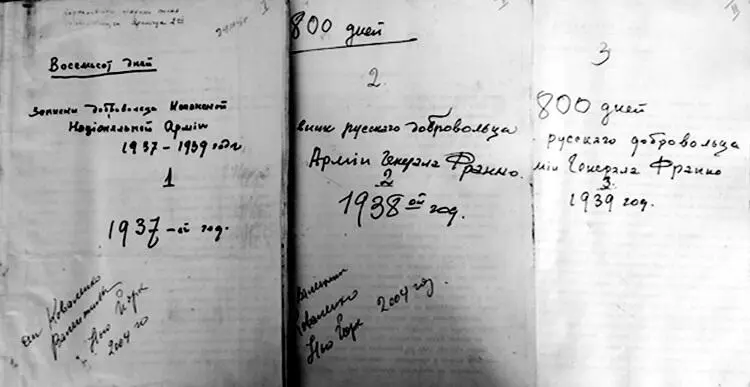 I
Восемьсот дней
Записки добровольца Испанской
Національной Арміи
1937 – 1939 года
1
1937-ой год.
Коваленко
Валентины
Нью Йорк
2004 го
800 дней
2.
вник русскаго добровольца
Арміи Генерала Франко.
2
1938 ой год.
Валентин
Коваленко
Нью Йорк 2004 год.
III
3
800 дней
русскаго добровольца
міи Генерала Франко
3.
1939 год.